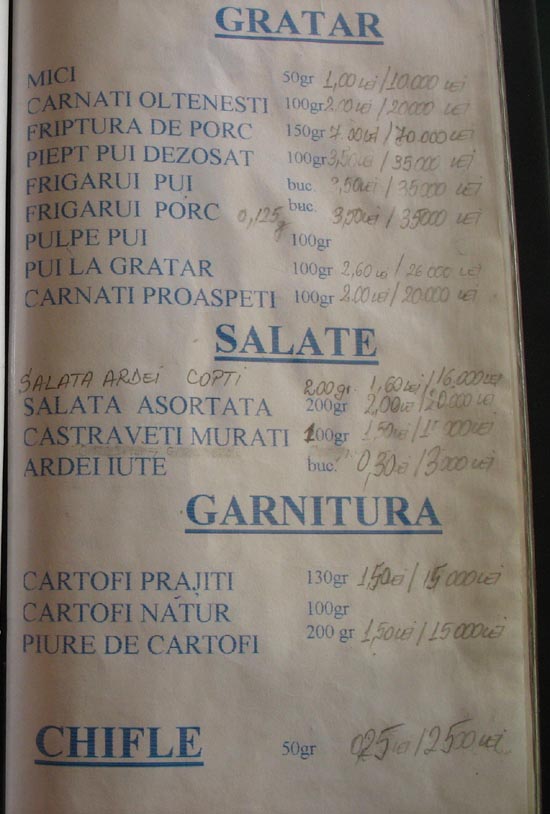 GRATAR
MICI 50gr 1,00 lei / 10.000 lei
CARNATI OLTENESTI 100gr 2.00 lei / 20000 lei
FRIPTURA DE PORC 150gr 7.00 lei / 70.000 lei
PIEPT PUI DEZOSAT 100gr 3,50 lei / 35000 lei
FRIGARUI PUI buc. 3,50 lei / 35000 lei
FRIGARUI PORC 0,125g buc. 3,50 lei / 35000 lei
PULPE PUI 100gr
PUI LA GRATAR 100gr 2,60 lei / 26000 lei
CARNATI PROASPETI 100gr 2.00 lei / 20.000 lei
SALATE
SALATA ARDEI COPTI 200gr. 1,60 lei / 16.000 lei
SALATA ASORTATA 200gr 2,00 lei / 20000 lei
CASTRAVETI MURATI 100gr 1,50 lei / lei
ARDEI IUTE buc. 0,30 lei / 3000 lei
GARNITURA
CARTOFI PRAJITI 130gr 1,50 lei / 15000 lei
CARTOFI NATUR 100gr
PIURE DE CARTOFI 200 gr 1,50 lei / 15000 lei
CHIFLE 50gr 0,25 lei / 2500 lei